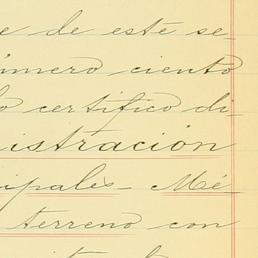 e de este se-
número ciento
lo certifico di-
istración
cipales- Mé
terreno con